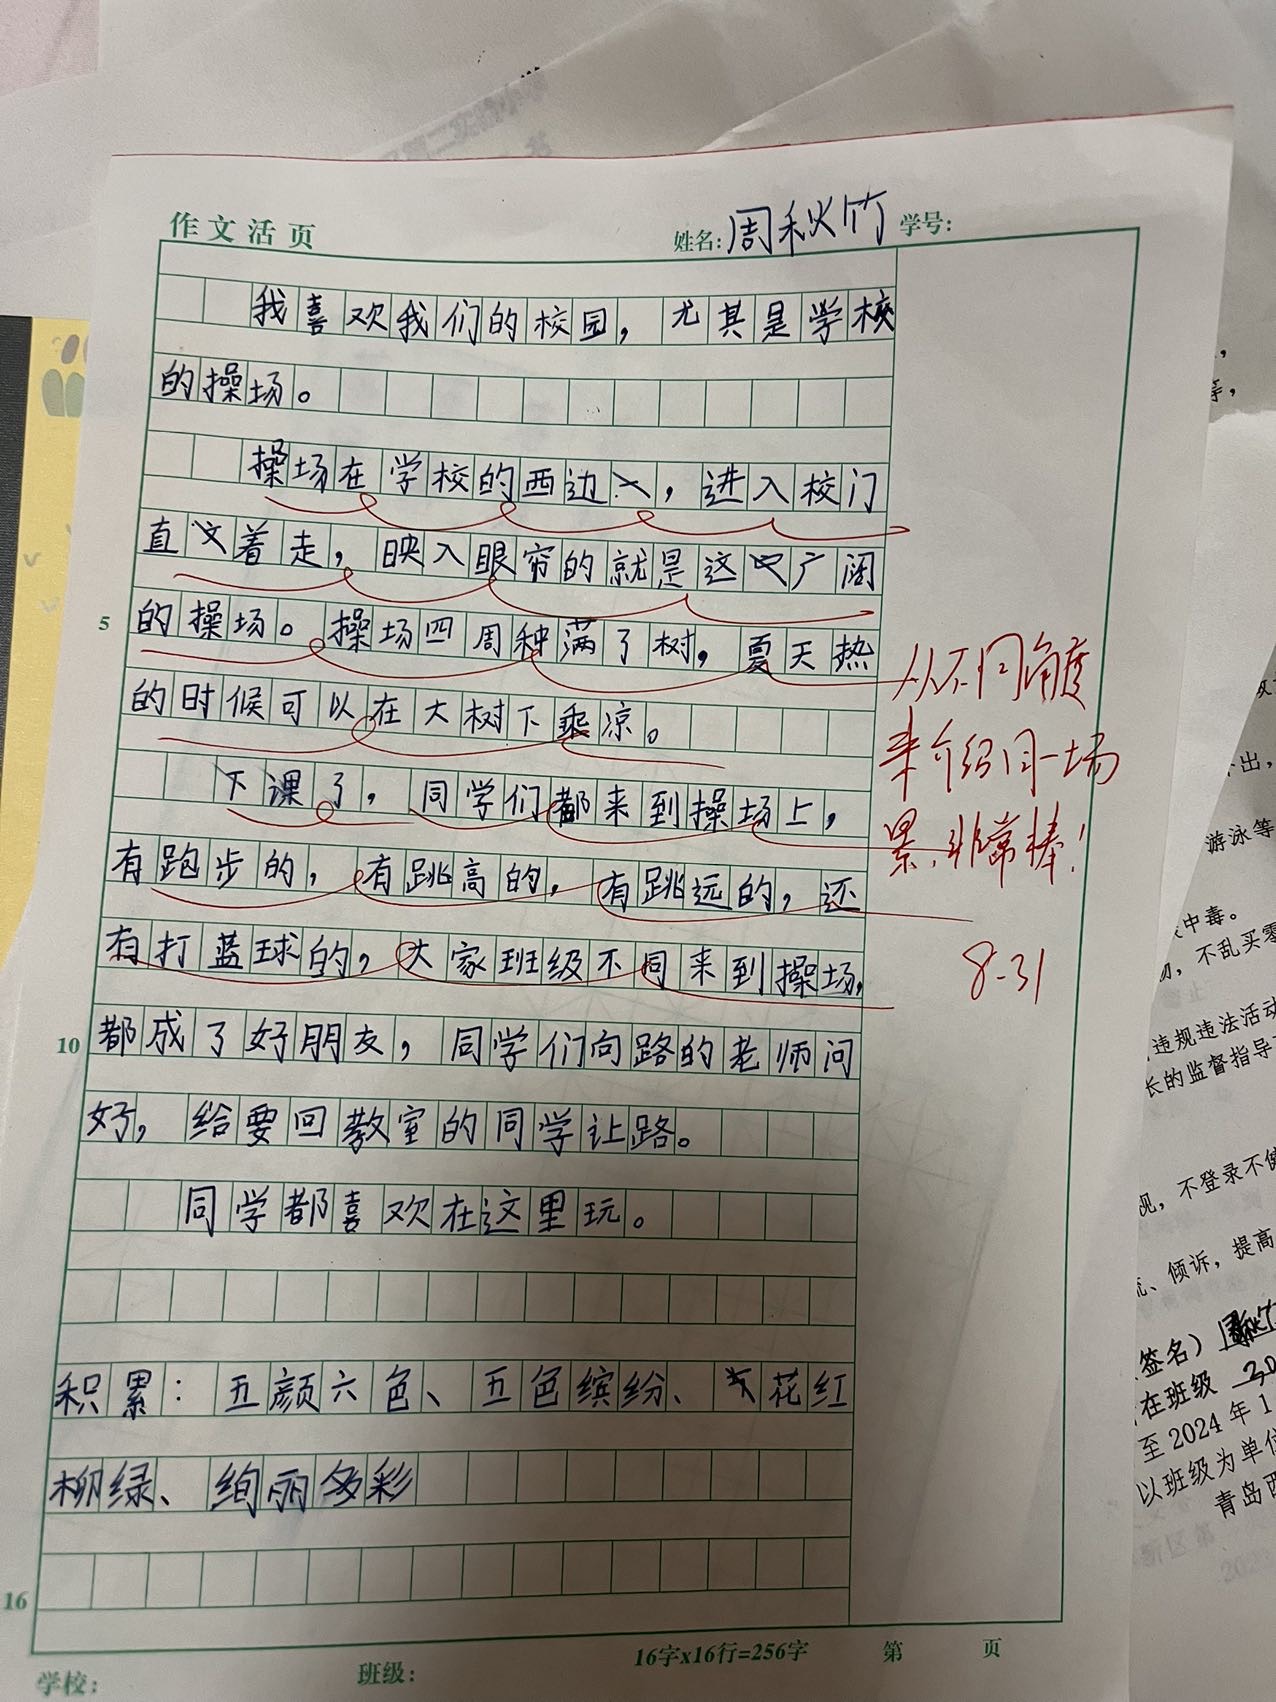 作文活页
姓名:周秋竹 学号:
我喜欢我们的校园，尤其是学校
的操场。
操场在学校的西边，进入校门
直着走，映入眼帘的就是这广阔
的操场。操场四周种满了树，夏天热
的时候可以在大树下乘凉。
下课了，同学们都来到操场上，
有跑步的，有跳高的，有跳远的，还
有打蓝球的，大家班级不同来到操场，
都成了好朋友，同学们向路的老师问
好，给要回教室的同学让路。
同学都喜欢在这里玩。
积累：五颜六色、五色缤纷、花红
柳绿、绚丽多彩
5
10
16
从不同角度
来介绍同一场
景，非常棒！
8-31
16字x16行=256字 第 页
学校: 班级:
游泳等
中毒。
不乱买零
违规违法活动
长的监督指导
不登录不健
倾诉，提高
签名）周秋竹
在班级
至2024年1
以班级为单位
青岛西